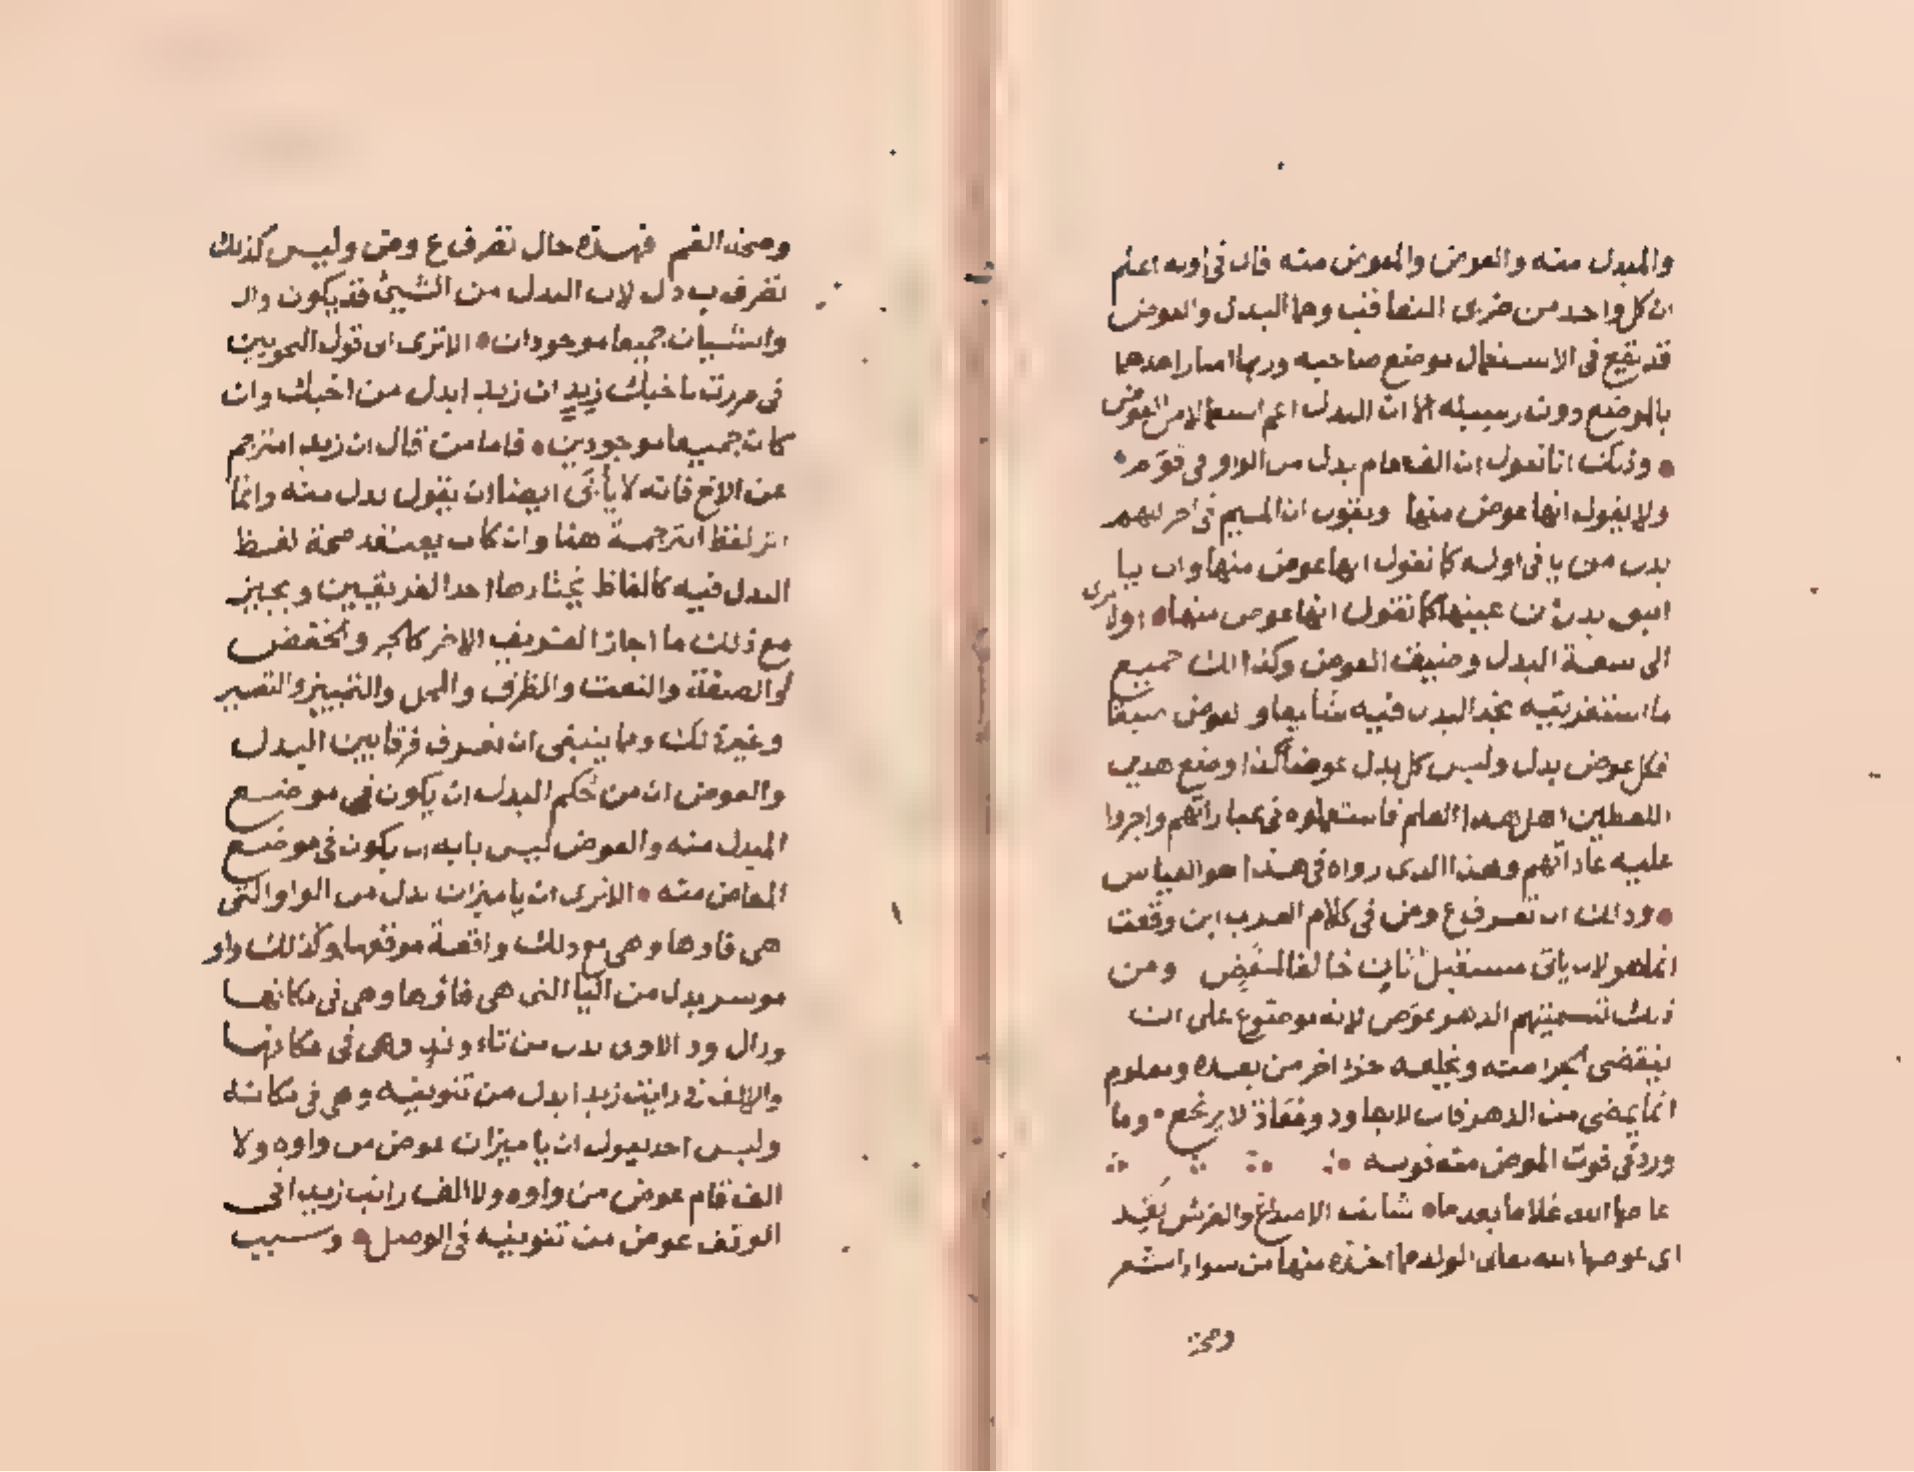 والمبدل منه والعوض والمعوض منه قال في اوله اعلم
ان كل واحد من ضربى التعاقب وهما البدل والعوض
قد يقع فى الاستعمال موضع صاحبه وربما امتاز احدهما
بالموضع دون رسيله الا ان البدل اعم استعمالا من العوض
وذلك انا نقول ان الف قام بدل من الواو فى قوم
ولا يقول انها عوض منها ويقول ان الميم فى اخر اللهم
بدل من يا فى اوله كما نقول انها عوض منها وان يا
اينق بدل من عينها كما نقول انها عوض منها اولا ترى
الى سعة البدل وضيق العوض وكذلك جميع
ما استقريته تجد البدل فيه شايعا و العوض ضيقا
فكل عوض بدل وليس كل بدل عوضا كذا وضع هذين
اللفظين اهل هذا العلم فاستعملوه فى عباراتهم واجروا
عليه عاداتهم وهذا الذى رواه فى هذا هو القياس
وذلك ان تصرف ع و ض فى كلام العرب اين وقعت
انما هو لان ياتى مستقبل ثان خالفا لمنقض ومن
ذلك تسميتهم الدهر عوض لانه موضوع على ان
ينقضى الجزء منه ويخلفه جزء اخر من بعده ومعلوم
انما يمضى من الدهر فان لا يعاود ومعاد لا يرتجع وما
ورد فى فوت المعوض منه قوله
عاضها الله غلاما بعد ما شابت الاصداغ والضرس نقد
اى عوضها الله تعالى الولد مما اخذه منها من سواد الشعر
وصحة
وصحة الفم فهذه حال تصرف ع وض وليس كذلك
تصرف ب د ل لان البدل من الشيئ قد يكون وال
والشيان جميعا موجودان الا ترى ان قول النحويين
فى مررت باخيك زيد ان زيد ابدل من اخيك وان
كانا جميعا موجودين فاما من قال ان زيد امترجم
عن الاخ فانه لا يأبى ايضا ان يقول بدل منه وانما
اثر لفظ الترجمة هنا وان كان يعتقد صحة لفظ
البدل فيه كالفاظ يختارها احد الفريقين ويجيز
مع ذلك ما اجاز الفريق الاخر كالجر والخفض
والصفة والنعت والظرف والمحل والتمييز والتفسير
وغير ذلك ومما ينبغى ان تعرف فرقا بين البدل
والعوض ان من حكم البدل ان يكون فى موضع
المبدل منه والعوض ليس بابه ان يكون فى موضع
المعاض منه الا ترى ان يا ميزان بدل من الواو التى
هى فاؤها وهى مع ذلك واقعة موقعها وكذلك واو
موسر بدل من اليا التى هى فاؤها وهى فى مكانها
ودال ود الاولى بدل من تاء وتد وهى فى مكانها
والالف فى رايت زيدا بدل من تنوينه وهى فى مكانه
وليس احد يقول ان يا ميزان عوض من واوه ولا
الف قام عوض من واوه ولا الف رايت زيدا فى
الوقف عوض من تنوينه فى الوصل وسبب